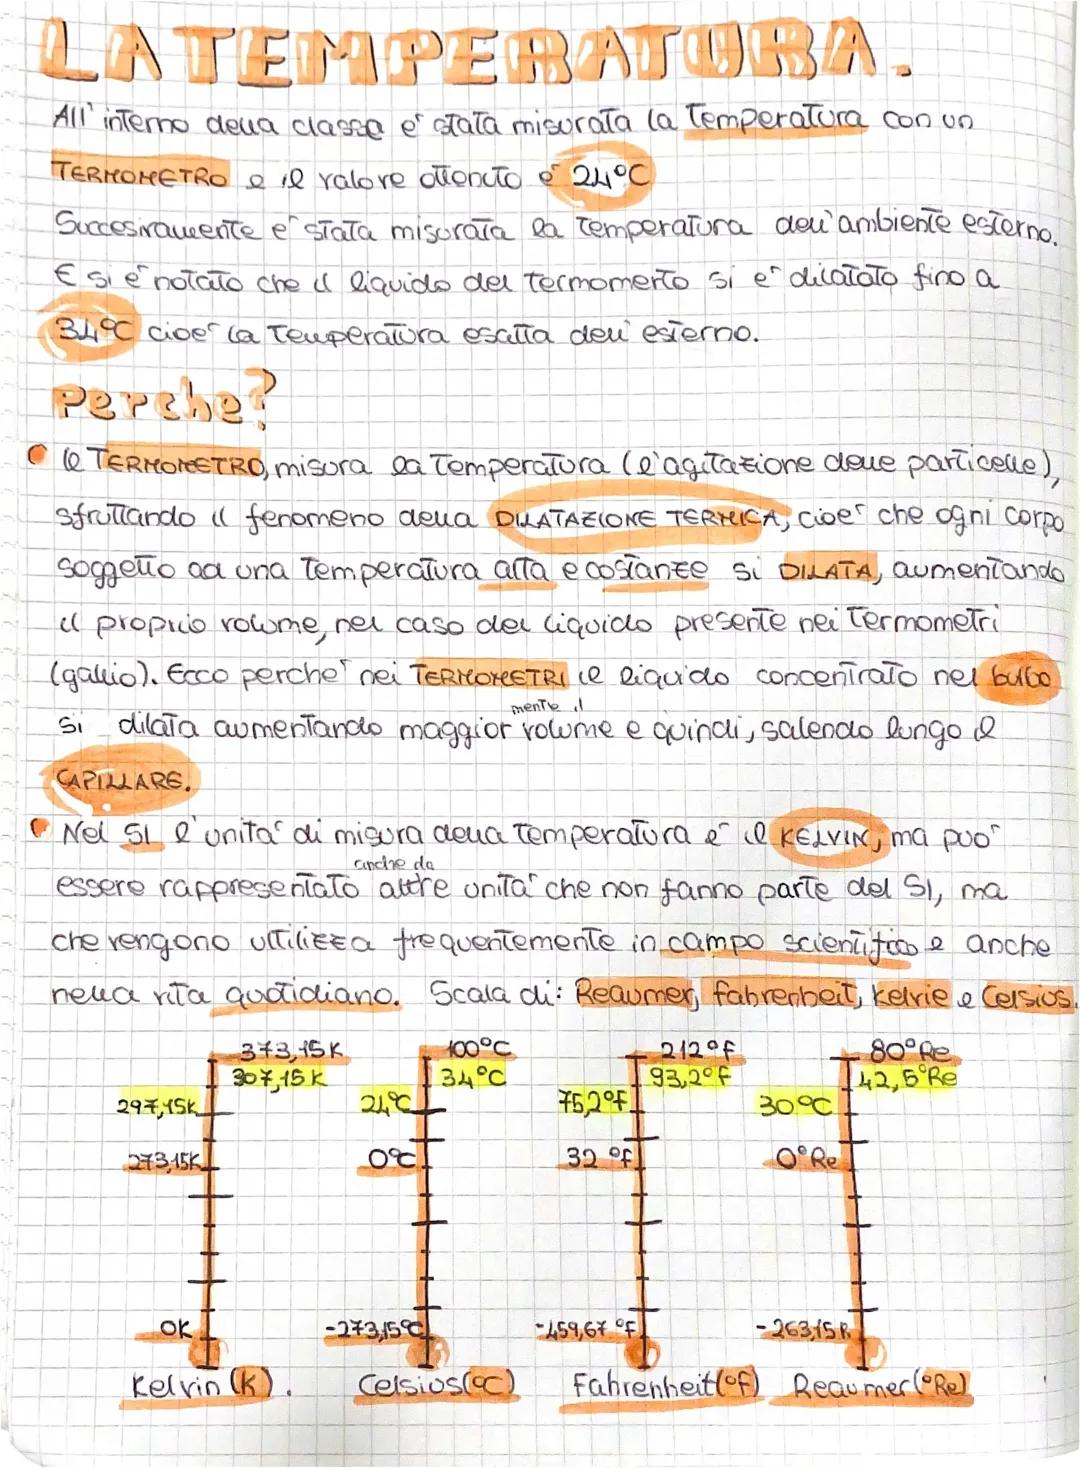 LA TEMPERATURA.
All'interno della classe e' stata misurata la Temperatura con un
TERMOMETRO e il valore ottenuto e' 24°C
Succesivamente e' stata misurata la temperatura dell'ambiente esterno.
E si e' notato che il liquido del termomerto si e' dilatato fino a
34°C cioe' la Temperatura esatta dell'esterno.
Perche?
il TERMOMETRO, misura la Temperatura (l'agitazione delle particelle),
sfruttando il fenomeno della DILATAZIONE TERMICA, cioe' che ogni corpo
soggetto ad una Temperatura alta e costante si DILATA, aumentando
il proprio volume, nel caso del liquido presente nei Termometri
(gallio). Ecco perche' nei TERMOMETRI il liquido concentrato nel bulbo
mente il
si dilata aumentando maggior volume e quindi, salendo lungo il
CAPILLARE.
Nel SI l'unita' di misura della Temperatura e' il KELVIN, ma puo'
anche da
essere rappresentato altre unita' che non fanno parte del SI, ma
che vengono uttilizza frequentemente in campo scientifico e anche
nella vita quotidiano. Scala di: Reaumer, fahrenheit, kelvie e Celsius.
373,15K 100°C 212°F 80°Re
307,15K 34°C 93,2°F 42,5°Re
297,15K 24°C 75,2°F 30°C
273,15K 0°C 32°F 0°Re
0K -273,15°C -459,67°F -263,15R
Kelvin (K). Celsius(°C) Fahrenheit(°F) Reaumer(°Re)